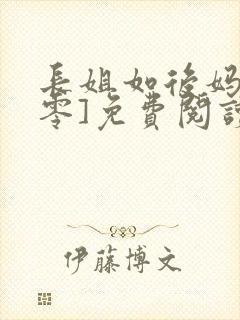 長姐如後媽
零]免費閱讀
伊藤博文